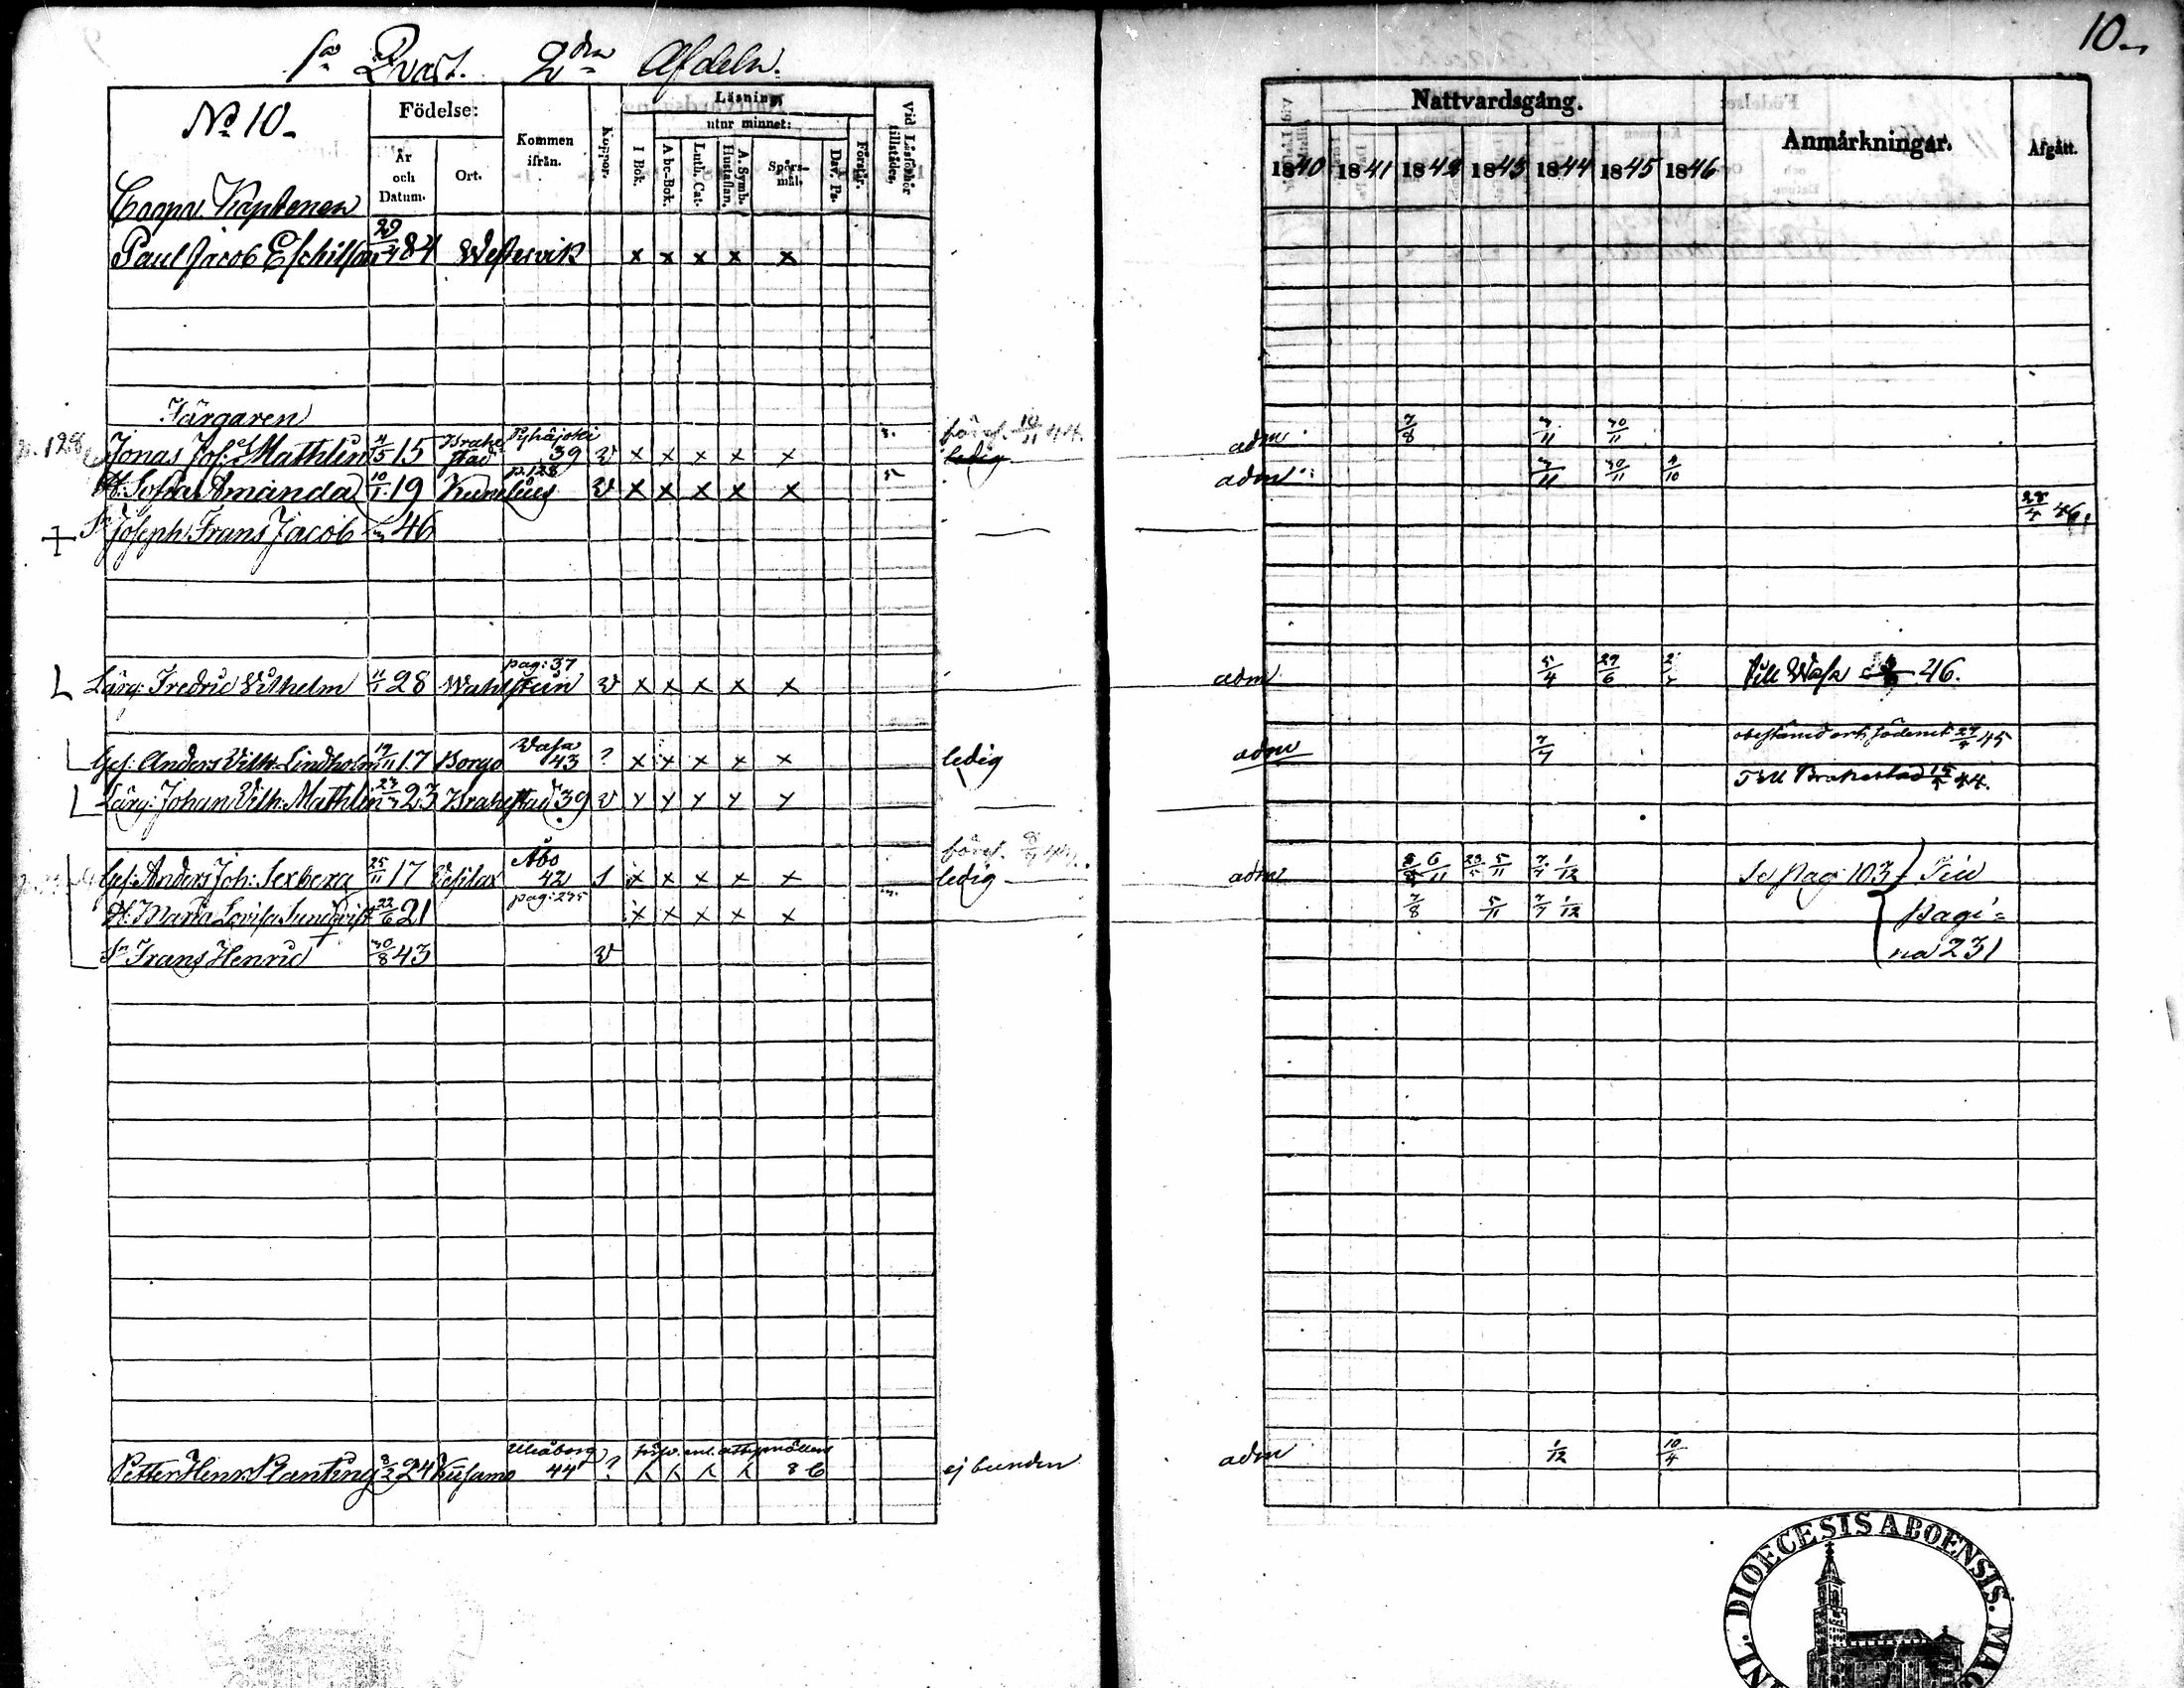 10.
1a Qvart. 2dra Afdeln.
No 10.
Födelse:
År och Datum.
Ort.
Kommen ifrån.
Koppor.
Läsning,
utur minnet:
I Bok.
A bc-Bok.
Luth. Cat.
A. Symb. Hustaflan.
Spörs-mål.
Dav. Ps.
Förstår.
Vid Läsförhör tillstädes.
Nattvardsgång.
1840 1841 1842 1843 1844 1845 1846
Anmärkningar.
Afgått.
Coopv. Kaptenen
Paul Jacob Eschilsson 29/ 84 Westervik x x x x x
Färgaren
p. 128 Jonas Jos. Mathlin 4/5 15 Brahestad Pyhäjoki 39 v x x x x x förs. 10/11 44. ledig adm 7/8 3/11 30/11
H: Sofia Amanda 10/1 19 Kunelius p. 128 v x x x x x adm: 3/11 30/11 4/10
+ Sn Joseph Frans Jacob 46 28/4 46.
Lärg: Fredric Vilhelm 11/1 28 Wahlstein pag: 37 v x x x x x adm 5/4 29/6 Till Wasa 46.
Ges. Anders Vilh. Lindholm 19/11 17 Borgo Wasa 43 ? x x x x x ledig adm 7/7 obestämd ort 45
Lärg: Johan Vilh: Mathlin 23 Brahestad 39 v x x x x x Till Brahestad 44.
Ges: Anders Joh: Sexbera 25/11 17 Vesilax Åbo 42 s x x x x x förs. 44. ledig adm 6/11 23/5 5/11 7/7 1/12 Se Pag: 103
H: Maria Lovisa Sundqvist 22/6 21 pag: 235 x x x x x 7/8 5/11 7/7 1/12 Pagi=
Sn Frans Henric 30/8 43 v na 231
Petter Henr. Planting 24 Kusamo Uleåborg 44 ? 8 6 ej bunden adm 1/12 10/4
DIOECESIS ABOENSIS. MAG